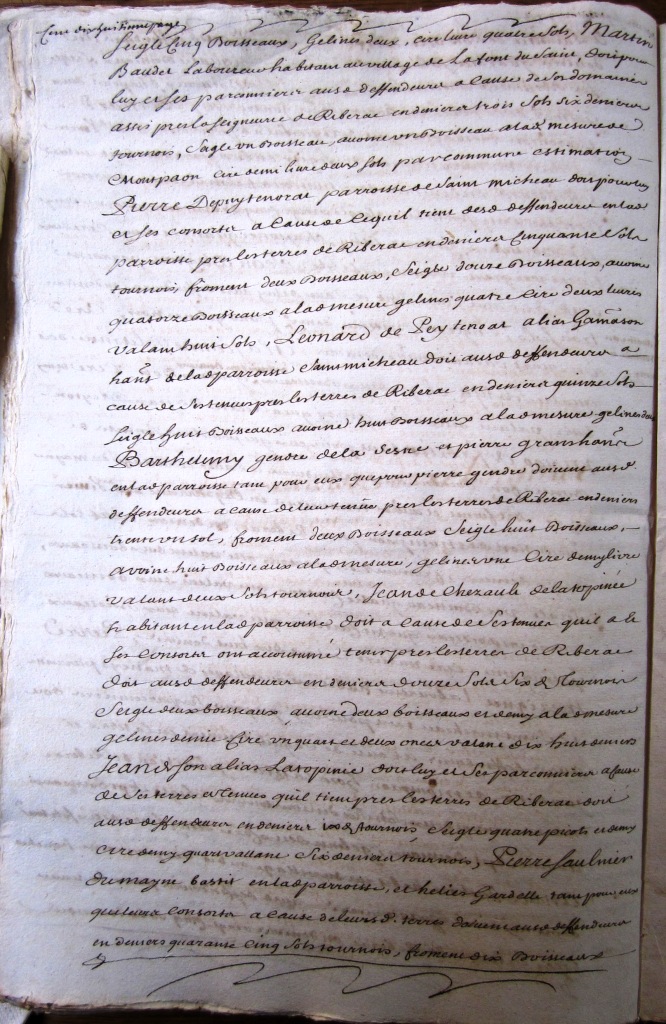 Cent dixhuitieme page
Seigle Cinq Boisseaux, Gelines deux, cire livre quatre Sols, Martin
Baudet Laboureur habitant au village de La font du Saint, doit pour
luy et ses parconniers ausd deffendeurs a Cause de Son domaine
assis pres la seigneurie de Riberac en deniers trois Sols six deniers
tournois, Sagle un Boisseau, avoine un Boisseau a lad mesure de
Montpaon Cire demi livre deux Sols par commune estimation
Pierre Depuytenorat parroisse de Saint micheau doit pour luy
et ses consorts a Cause de Ce quil tient desd deffendeurs en lad
parroisse pres les terres de Riberac en deniers Cinquante Sols
tournois, froment deux Boisseaux, Seigle douze Boisseaux, avoine
quatorze Boisseaux a lad mesure gelines quatre Cire deux livres
valant huit Sols, Leonard de Peytenoat alias Gamason
hant de lad parroisse Saint micheau doit ausd deffendeurs a
cause de Ses tenues pres les terres de Riberac en deniers quinze Sols
Seigle huit Boisseaux avoine huit Boisseaux a lad mesure gelines deux
Barthelemy gendre de la Sesne et pierre
en lad parroisse tant pour eux que pour pierre gendre doivent ausd
deffendeurs a cause de leur tenue pres les terres de Riberac en deniers
trente un sol, froment deux Boisseaux Seigle huit Boisseaux,
avoine huit Boisseaux a lad mesure, geline une Cire demy livre
valant deux Sols tournois, Jean de Chezault de Latopinée
habitant en lad parroisse doit a Cause de Ses tenues quil a et
Ses Consorts ont acoutumé tenir pres les terres de Riberac
doit ausd deffendeurs en deniers douze Sols Six d Tournois
Seigle deux boisseaux avoine deux boisseaux et demy a lad mesure
gelines demie Cire un quart et deux onces valant dix huit deniers
Jean son alias Latopinie doit luy et Ses parconniers a Cause
de Ses terres et tenues quil tient pres les terres de Riberac doit
ausd deffendeurs en deniers tournois, Seigle quatre picots et demy
Cire demy quart vallant Six deniers tournois, Pierre faulnier
du mayne bastit en lad parroisse, et helies Gardelle tant pour eux
que leurs Consorts a Cause de leursd. terres doivent ausd deffendeurs
en deniers quarante Cinq Sols tournois, froment dix Boisseaux